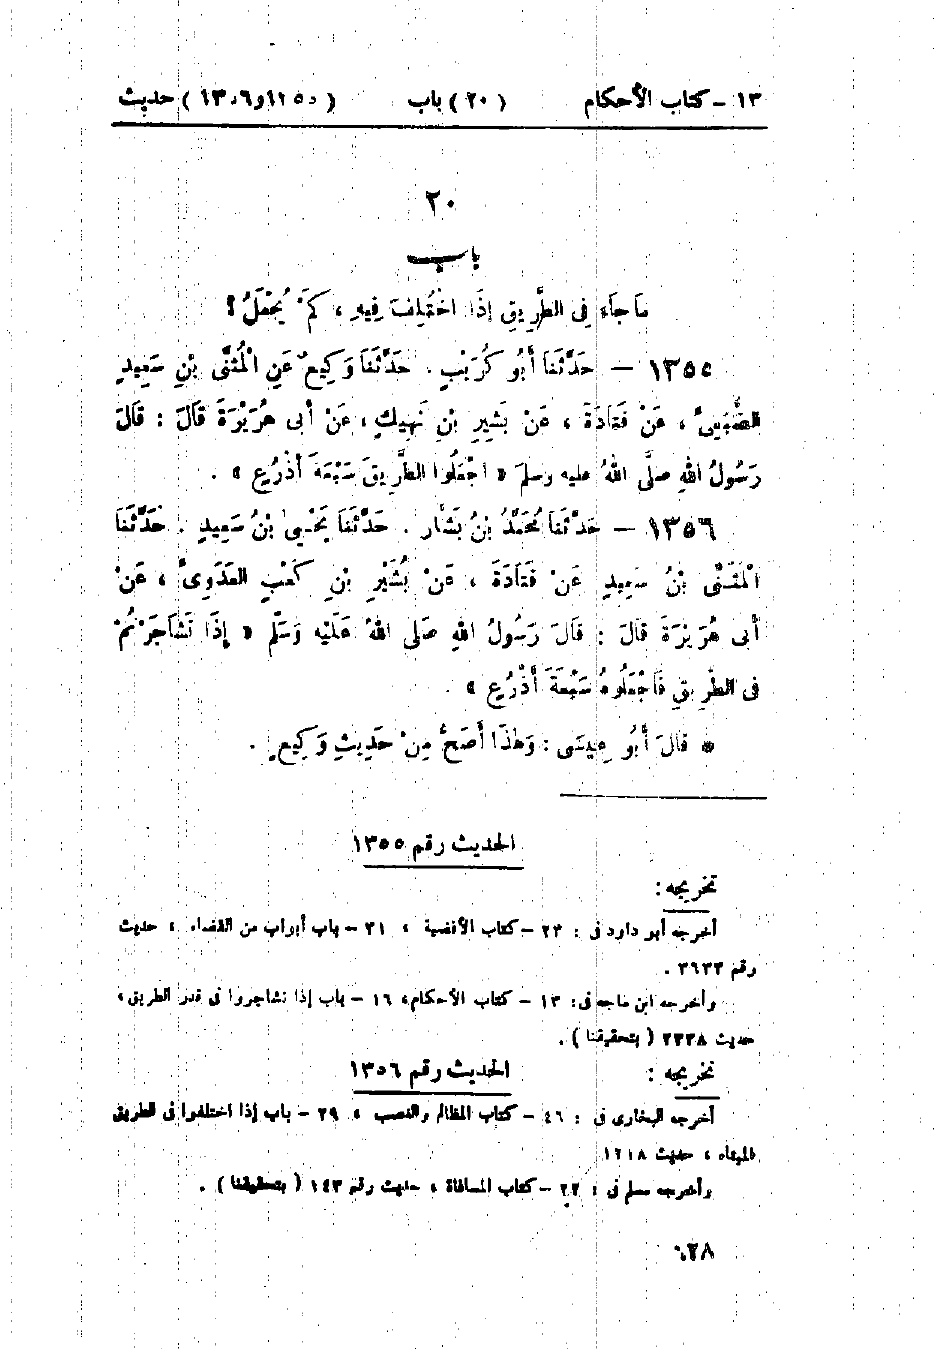 ١٣ – كتاب الأحكام (٢٠) باب (١٣٥٥ و١٣٥٦) حديث
٢٠
باب
مَا جَاءَ فِى الطَّرِيقِ إِذَا اخْتُلِفَ فِيهِ ، كَمْ يُجْعَلُ ؟
١٣٥٥ – حَدَّثَنَا أَبُو كُرَيْبٍ . حَدَّثَنَا وَكِيعٌ عَنِ الْمُثَنَّى بْنِ سَعِيدٍ
الضُّبَعِىِّ ، عَنْ قَتَادَةَ ، عَنْ بَشِيرِ بْنِ نَهِيكٍ ، عَنْ أَبِى هُرَيْرَةَ قَالَ : قَالَ
رَسُولُ اللهِ صلَّى اللهُ عليه وسلمَ « اجْعَلُوا الطَّرِيقَ سَبْعَةَ أَذْرُعٍ » .
١٣٥٦ – حَدَّثَنَا مُحَمَّدُ بْنُ بَشَّارٍ . حَدَّثَنَا يَحْيىَ بْنُ سَعِيدٍ . حَدَّثَنَا
الْمُثَنَّى بْنُ سَعِيدٍ عَنْ قَتَادَةَ ، عَنْ بُشَيْرِ بْنِ كَعْبٍ العَدَوِىِّ ، عَنْ
أَبِى هُرَيْرَةَ قَالَ : قَالَ رَسُولُ اللهِ صَلى اللهُ عَلَيْهِ وَسَلّم « إِذَا تَشَاجَرْتُمْ
فِى الطَّرِيقِ فَاجْعَلُوهُ سَبْعَةَ أَذْرُعٍ » .
* قَالَ أَبُو عِيسَى : وَهٰذَا أَصَحُّ مِنْ حَدِيثِ وَكِيعٍ .
الحديث رقم ١٣٥٥
تخريجه :
أخرجه أبو داود فى : ٢٣ – كتاب الأقضية ، ٣١ – باب أبواب من القضاء ، حديث
رقم ٣٦٣٣ .
وأخرجه ابن ماجه فى : ١٣ – كتاب الأحكام ، ١٦ – باب إذا تشاجروا فى قدر الطريق ،
حديث ٢٣٣٨ ( بتحقيقنا ) .
الحديث رقم ١٣٥٦
تخريجه :
أخرجه البخارى فى : ٤٦ – كتاب المظالم والغصب ، ٢٩ – باب إذا اختلفوا فى الطريق
الميتاء ، حديث ١٢١٨
وأخرجه مسلم فى : ٢٢ – كتاب المساقاة ، حديث رقم ١٤٣ ( بتحقيقنا ) .
٦٢٨